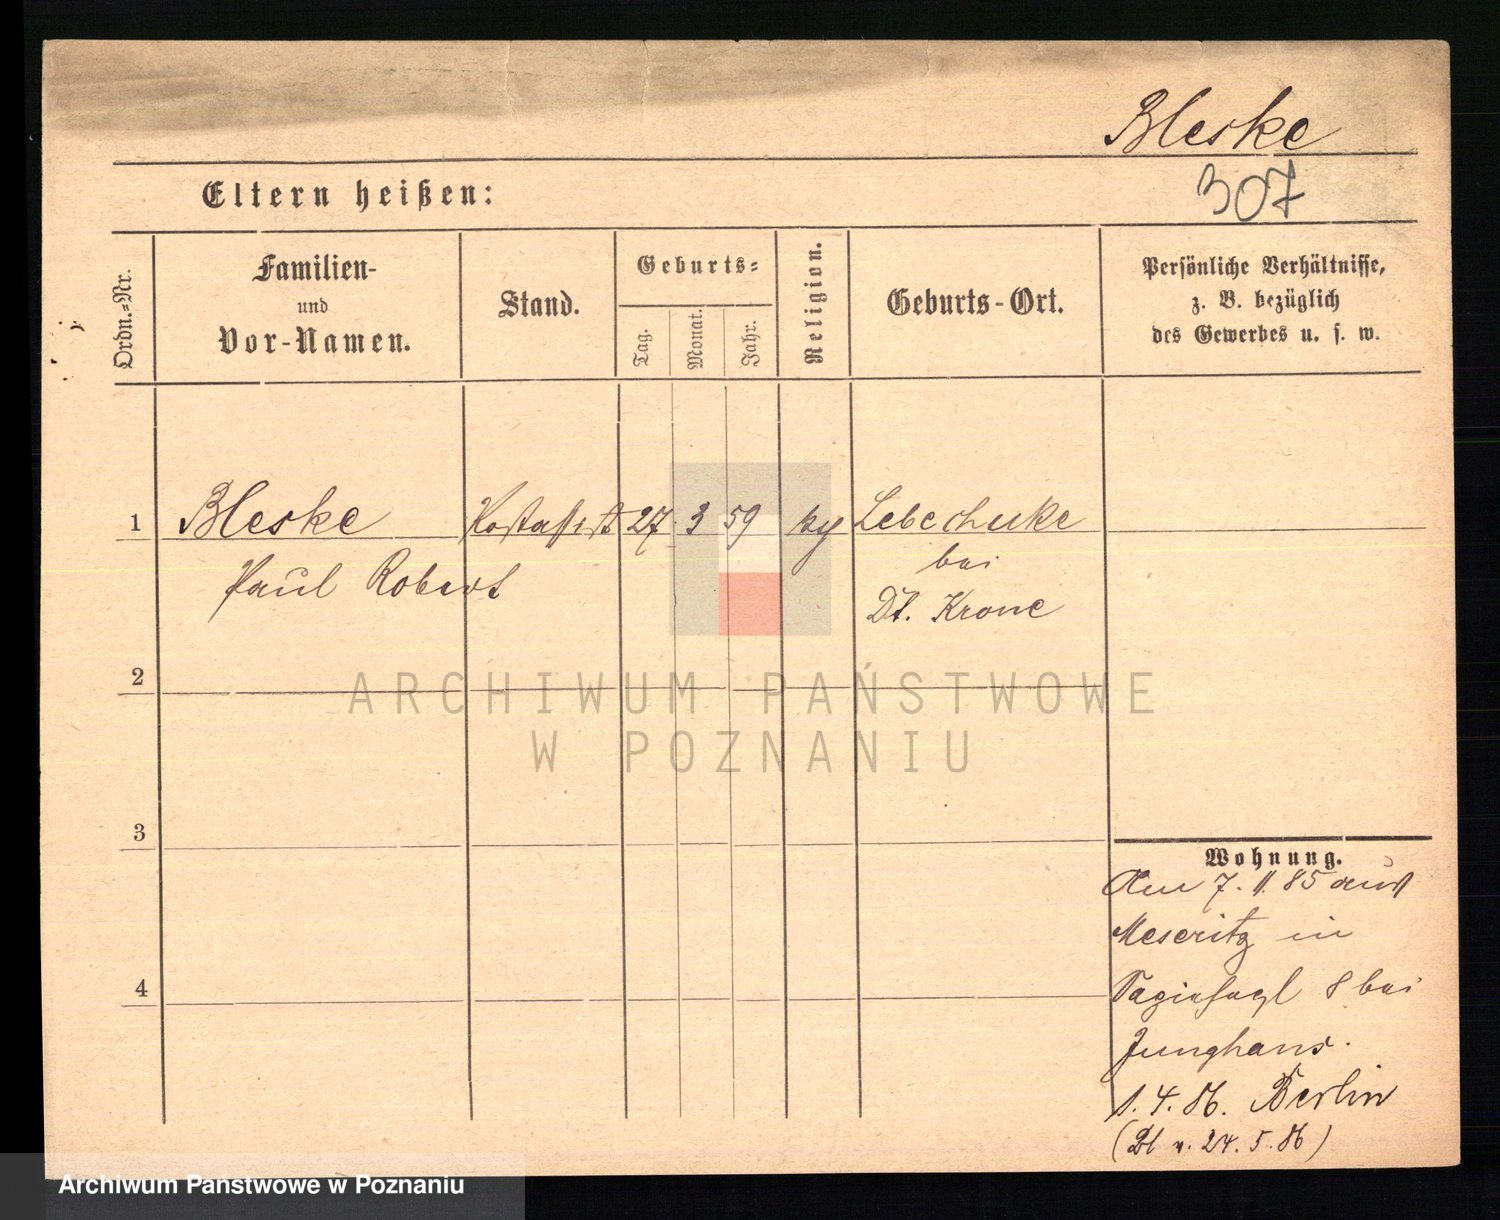 Bleske
Eltern heißen:
307
Ordn.-Nr.
Familien-
und
Vor-Namen.
Stand.
Geburts-
Tag.
Monat.
Jahr.
Religion.
Geburts-Ort.
Persönliche Verhältnisse,
z. B. bezüglich
des Gewerbes u. s. w.
1 Bleske 27. 3 59 Lebehnke
Paul Robert
bei
Dt. Krone
2
ARCHIWUM PAŃSTWOWE
W POZNANIU
3
4
Wohnung.
Am 7. 11. 85 aus
Meseritz in
8 bei
Junghans.
1. 4. 86. Berlin
(Bl v. 24. 5. 86)
Archiwum Państwowe w Poznaniu